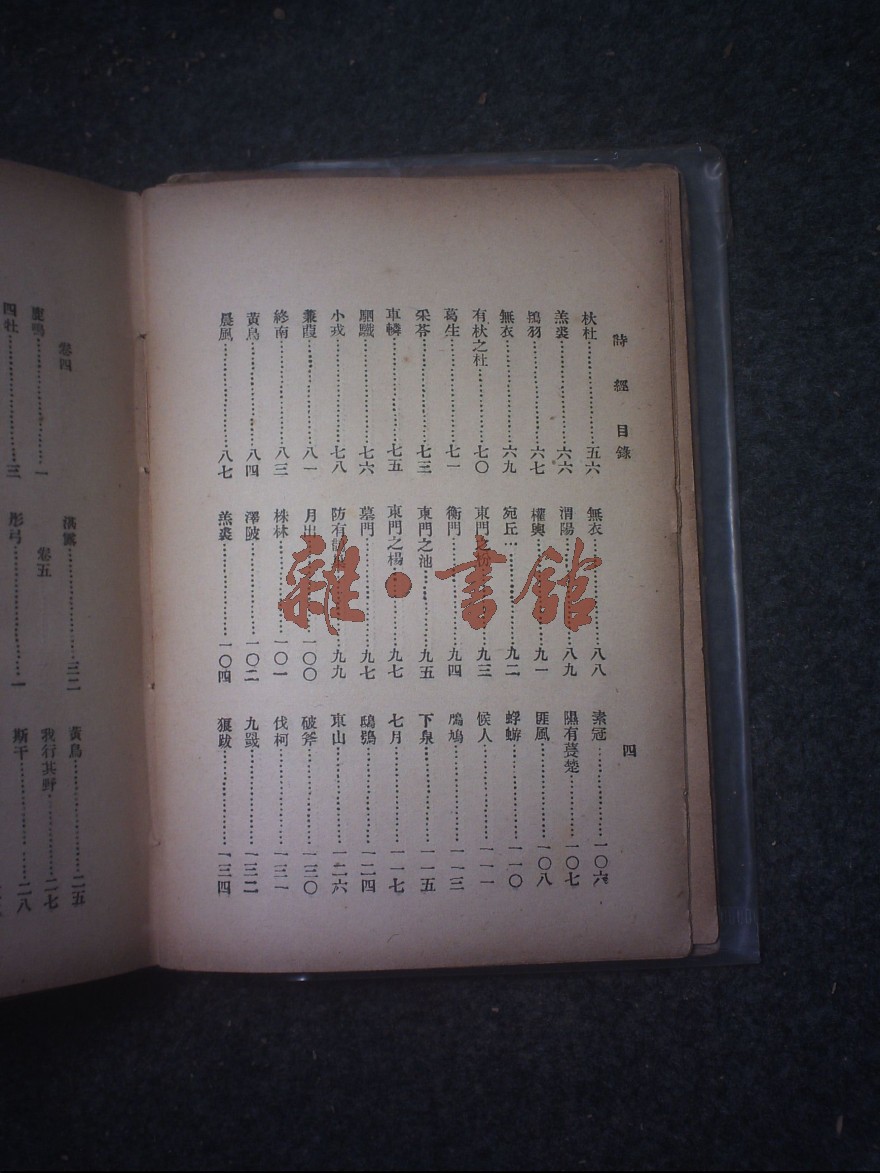 詩經目錄
四
杕杜…………五六
羔裘…………六六
鴇羽…………六七
無衣…………六九
有杕之杜…………七〇
葛生…………七一
采苓…………七三
車轔…………七五
駟驖…………七六
小戎…………七八
蒹葭…………八一
終南…………八三
黃鳥…………八四
晨風…………八七
無衣…………八八
渭陽…………八九
權輿…………九一
宛丘…………九二
東門之枌…………九三
衡門…………九四
東門之池…………九五
東門之楊…………九七
墓門…………九七
防有…………九九
月出…………一〇〇
株林…………一〇一
澤陂…………一〇二
羔裘…………一〇四
素冠…………一〇六
隰有萇楚…………一〇七
匪風…………一〇八
蜉蝣…………一一〇
候人…………一一一
鳲鳩…………一一三
下泉…………一一五
七月…………一一七
鴟鴞…………一二四
東山…………一二六
破斧…………一三〇
伐柯…………一三一
九罭…………一三二
狼跋…………一三四
雜·書館
卷四
鹿鳴…………一
四牡…………三
湛露…………二二
卷五
彤弓…………一
黃鳥…………二五
我行其野…………二七
斯干…………二八